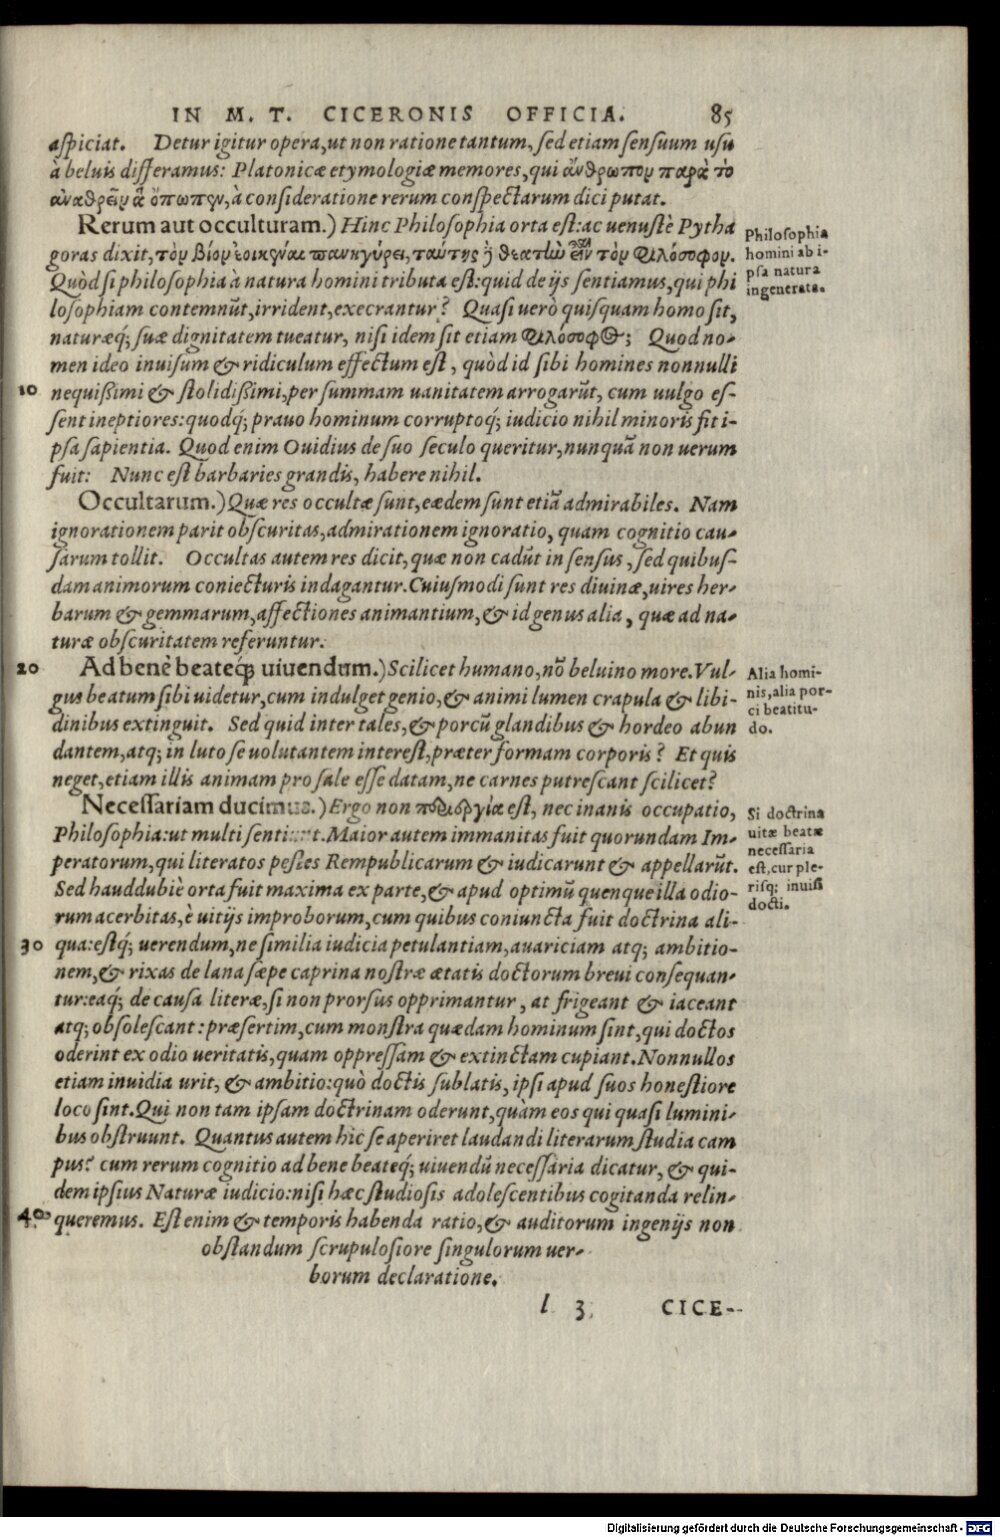 IN M. T. CICERONIS OFFICIA. 85
aspiciat. Detur igitur opera, ut non ratione tantum, sed etiam sensuum usu
à beluis differamus: Platonicæ etymologiæ memores, qui ἄνθρωπον παρὰ τὸ
ἀναθρεῖν ἃ ὄπωπεν, à consideratione rerum conspectarum dici putat.
Rerum aut occulturam.) Hinc Philosophia orta est: ac uenustè Pytha
goras dixit, τὸν βίον ἐοικέναι πανηγύρει, ταύτης ἢ θεατὼ εἶναι τὸν φιλόσοφον.
Quòd si philosophia à natura homini tributa est: quid de ijs sentiamus, qui phi
losophiam contemnūt, irrident, execrantur? Quasi uerò quisquam homo sit,
naturæq́; suæ dignitatem tueatur, nisi idem sit etiam φιλόσοφος; Quod no-
men ideo inuisum & ridiculum effectum est, quòd id sibi homines nonnulli
10 nequißimi & stolidißimi, per summam uanitatem arrogarūt, cum uulgo es-
sent ineptiores: quodq́; prauo hominum corruptoq́; iudicio nihil minoris fit i-
psa sapientia. Quod enim Ouidius de suo seculo queritur, nunquā non uerum
fuit: Nunc est barbaries grandis, habere nihil.
Occultarum.) Quæ res occultæ sunt, eædem sunt etiā admirabiles. Nam
ignorationem parit obscuritas, admirationem ignoratio, quam cognitio cau-
sarum tollit. Occultas autem res dicit, quæ non cadūt in sensus, sed quibus-
dam animorum coniecturis indagantur. Cuiusmodi sunt res diuinæ, uires her-
barum & gemmarum, affectiones animantium, & id genus alia, quæ ad na-
turæ obscuritatem referuntur.
20 Ad benè beateq́; uiuendum.) Scilicet humano, nō beluino more. Vul-
gus beatum sibi uidetur, cum indulget genio, & animi lumen crapula & libi-
dinibus extinguit. Sed quid inter tales, & porcū glandibus & hordeo abun
dantem, atq; in luto se uolutantem interest, præter formam corporis? Et quis
neget, etiam illis animam pro sale esse datam, ne carnes putrescant scilicet?
Necessariam ducimus.) Ergo non περιεργία est, nec inanis occupatio,
Philosophia: ut multi sentiunt. Maior autem immanitas fuit quorundam Im-
peratorum, qui literatos pestes Rempublicarum & iudicarunt & appellarūt.
Sed hauddubiè orta fuit maxima ex parte, & apud optimū quenque illa odio-
rum acerbitas, è uitijs improborum, cum quibus coniuncta fuit doctrina ali-
30 qua: estq́; uerendum, ne similia iudicia petulantiam, auariciam atq; ambitio-
nem, & rixas de lana sæpe caprina nostræ ætatis doctorum breui consequan-
tur: eaq́; de causa literæ, si non prorsus opprimantur, at frigeant & iaceant
atq; obsolescant: præsertim, cum monstra quædam hominum sint, qui doctos
oderint ex odio ueritatis, quam oppressam & extinctam cupiant. Nonnullos
etiam inuidia urit, & ambitio: quò doctis sublatis, ipsi apud suos honestiore
loco sint. Qui non tam ipsam doctrinam oderunt, quàm eos qui quasi lumini-
bus obstruunt. Quantus autem hic se aperiret laudandi literarum studia cam
pus? cum rerum cognitio ad bene beateq́; uiuendū necessaria dicatur, & qui-
dem ipsius Naturæ iudicio: nisi hæc studiosis adolescentibus cogitanda relin-
40 queremus. Est enim & temporis habenda ratio, & auditorum ingenijs non
obstandum scrupulosiore singulorum uer-
borum declaratione.
l 3 CICE-
Philosophia
homini ab i-
psa natura
ingenerata.
Alia homi-
nis, alia por-
ci beatitu-
do.
Si doctrina
uitæ beatæ
necessaria
est, cur ple-
risq; inuisi
docti.
Digitalisierung gefördert durch die Deutsche Forschungsgemeinschaft - DFG